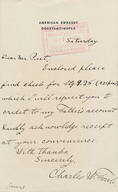 AMERICAN EMBASSY
CONSTANTINOPLE
Saturday
Dear Mr.
Enclosed please
find check for
which I will request you to
credit to my Father's account
Kindly acknowledge receipt
at your convenience.
With thanks
Sincerely,
Charles W.